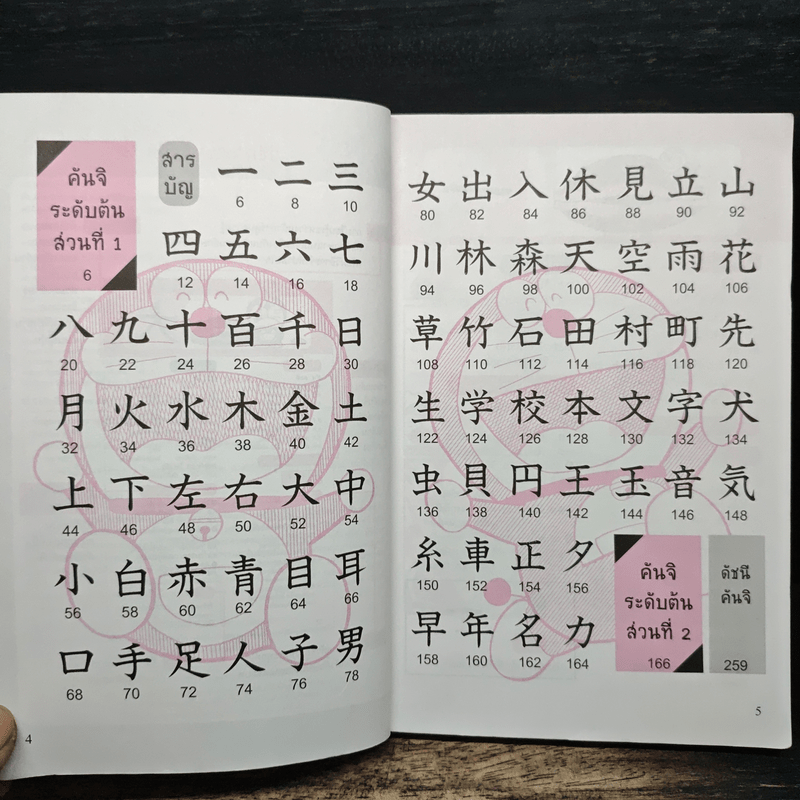 คันจิ
ระดับต้น
ส่วนที่ 1
6
สาร
บัญ
一 二 三
6 8 10
四 五 六 七
12 14 16 18
八 九 十 百 千 日
20 22 24 26 28 30
月 火 水 木 金 土
32 34 36 38 40 42
上 下 左 右 大 中
44 46 48 50 52 54
小 白 赤 青 目 耳
56 58 60 62 64 66
口 手 足 人 子 男
68 70 72 74 76 78
4
女 出 入 休 見 立 山
80 82 84 86 88 90 92
川 林 森 天 空 雨 花
94 96 98 100 102 104 106
草 竹 石 田 村 町 先
108 110 112 114 116 118 120
生 学 校 本 文 字 犬
122 124 126 128 130 132 134
虫 貝 円 王 玉 音 気
136 138 140 142 144 146 148
糸 車 正 夕
150 152 154 156
早 年 名 力
158 160 162 164
คันจิ
ระดับต้น
ส่วนที่ 2
166
ดัชนี
คันจิ
259
5